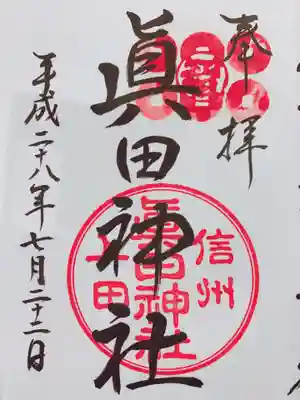 奉拝
眞田神社
信州
上田
眞田神社
平成二十八年七月二十二日